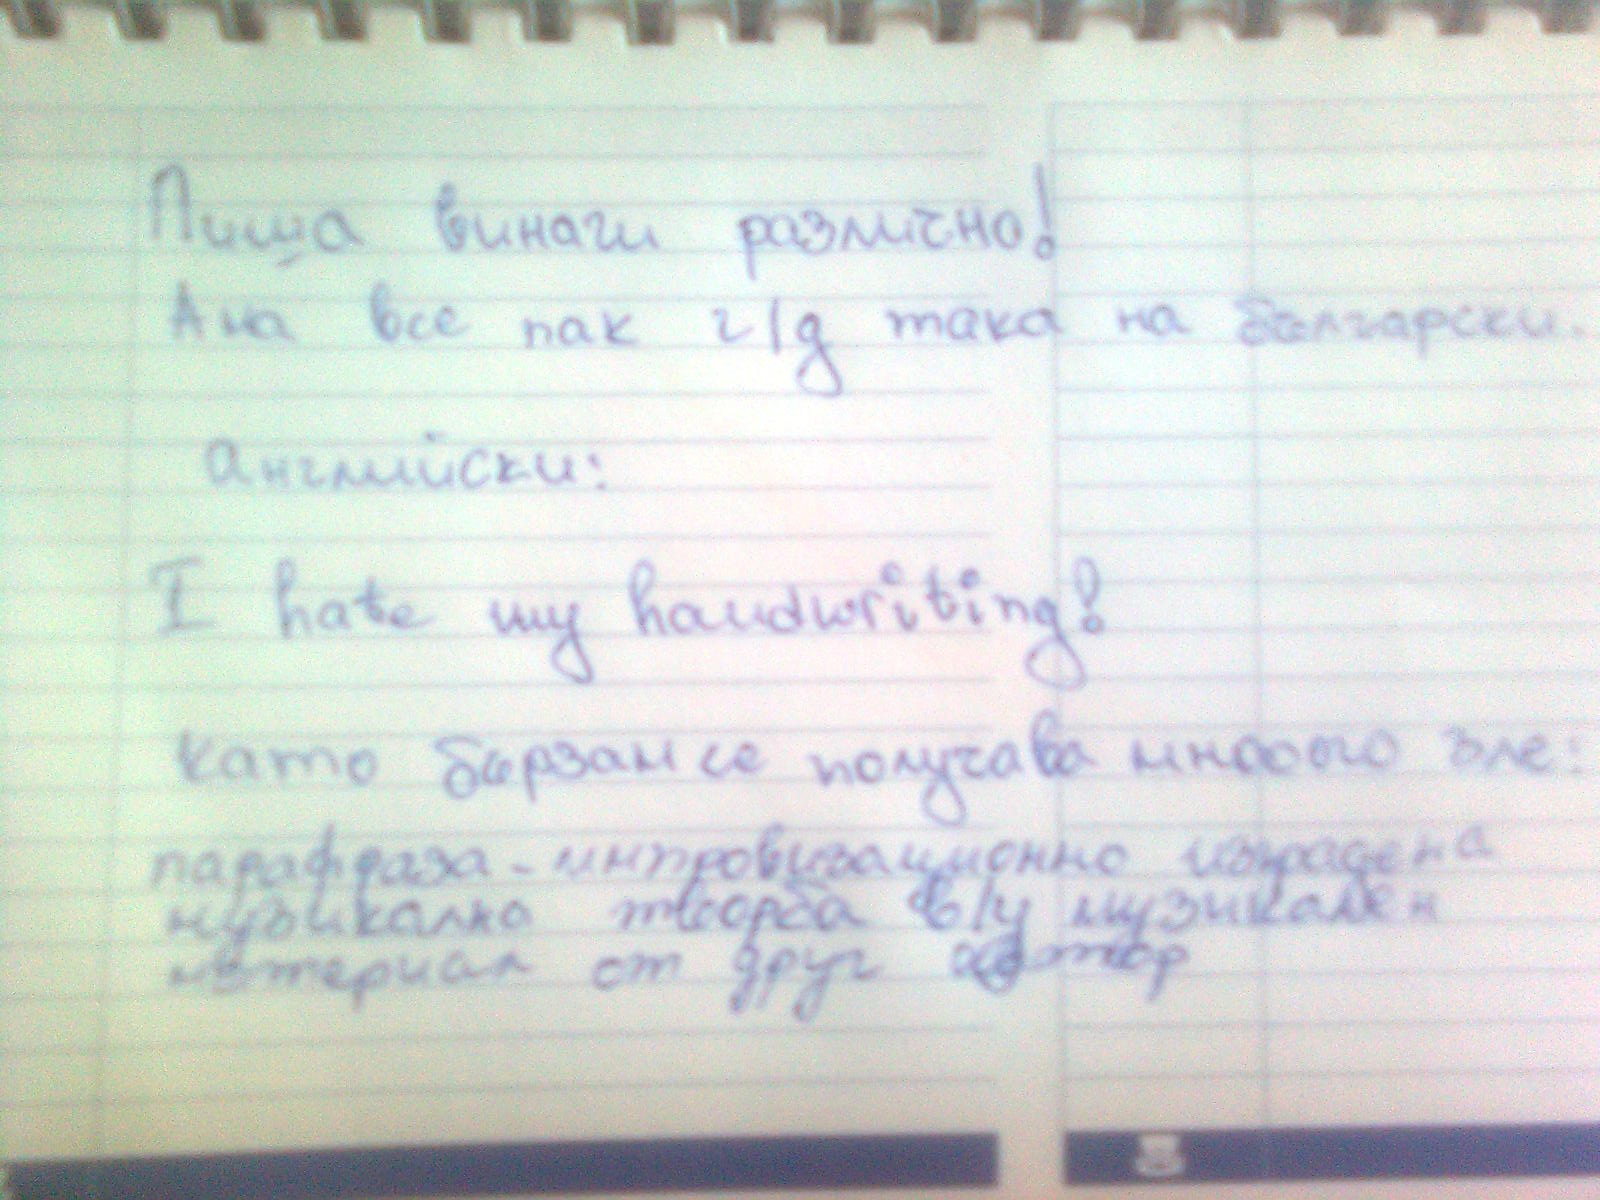 Пиша винаги различно!
Ама все пак г/д така на български.
Английски:
I hate my handwriting!
Като бързам се получава много зле:
парафраза - импровизационно изградена
музикална творба в/у музикален
материал от друг автор